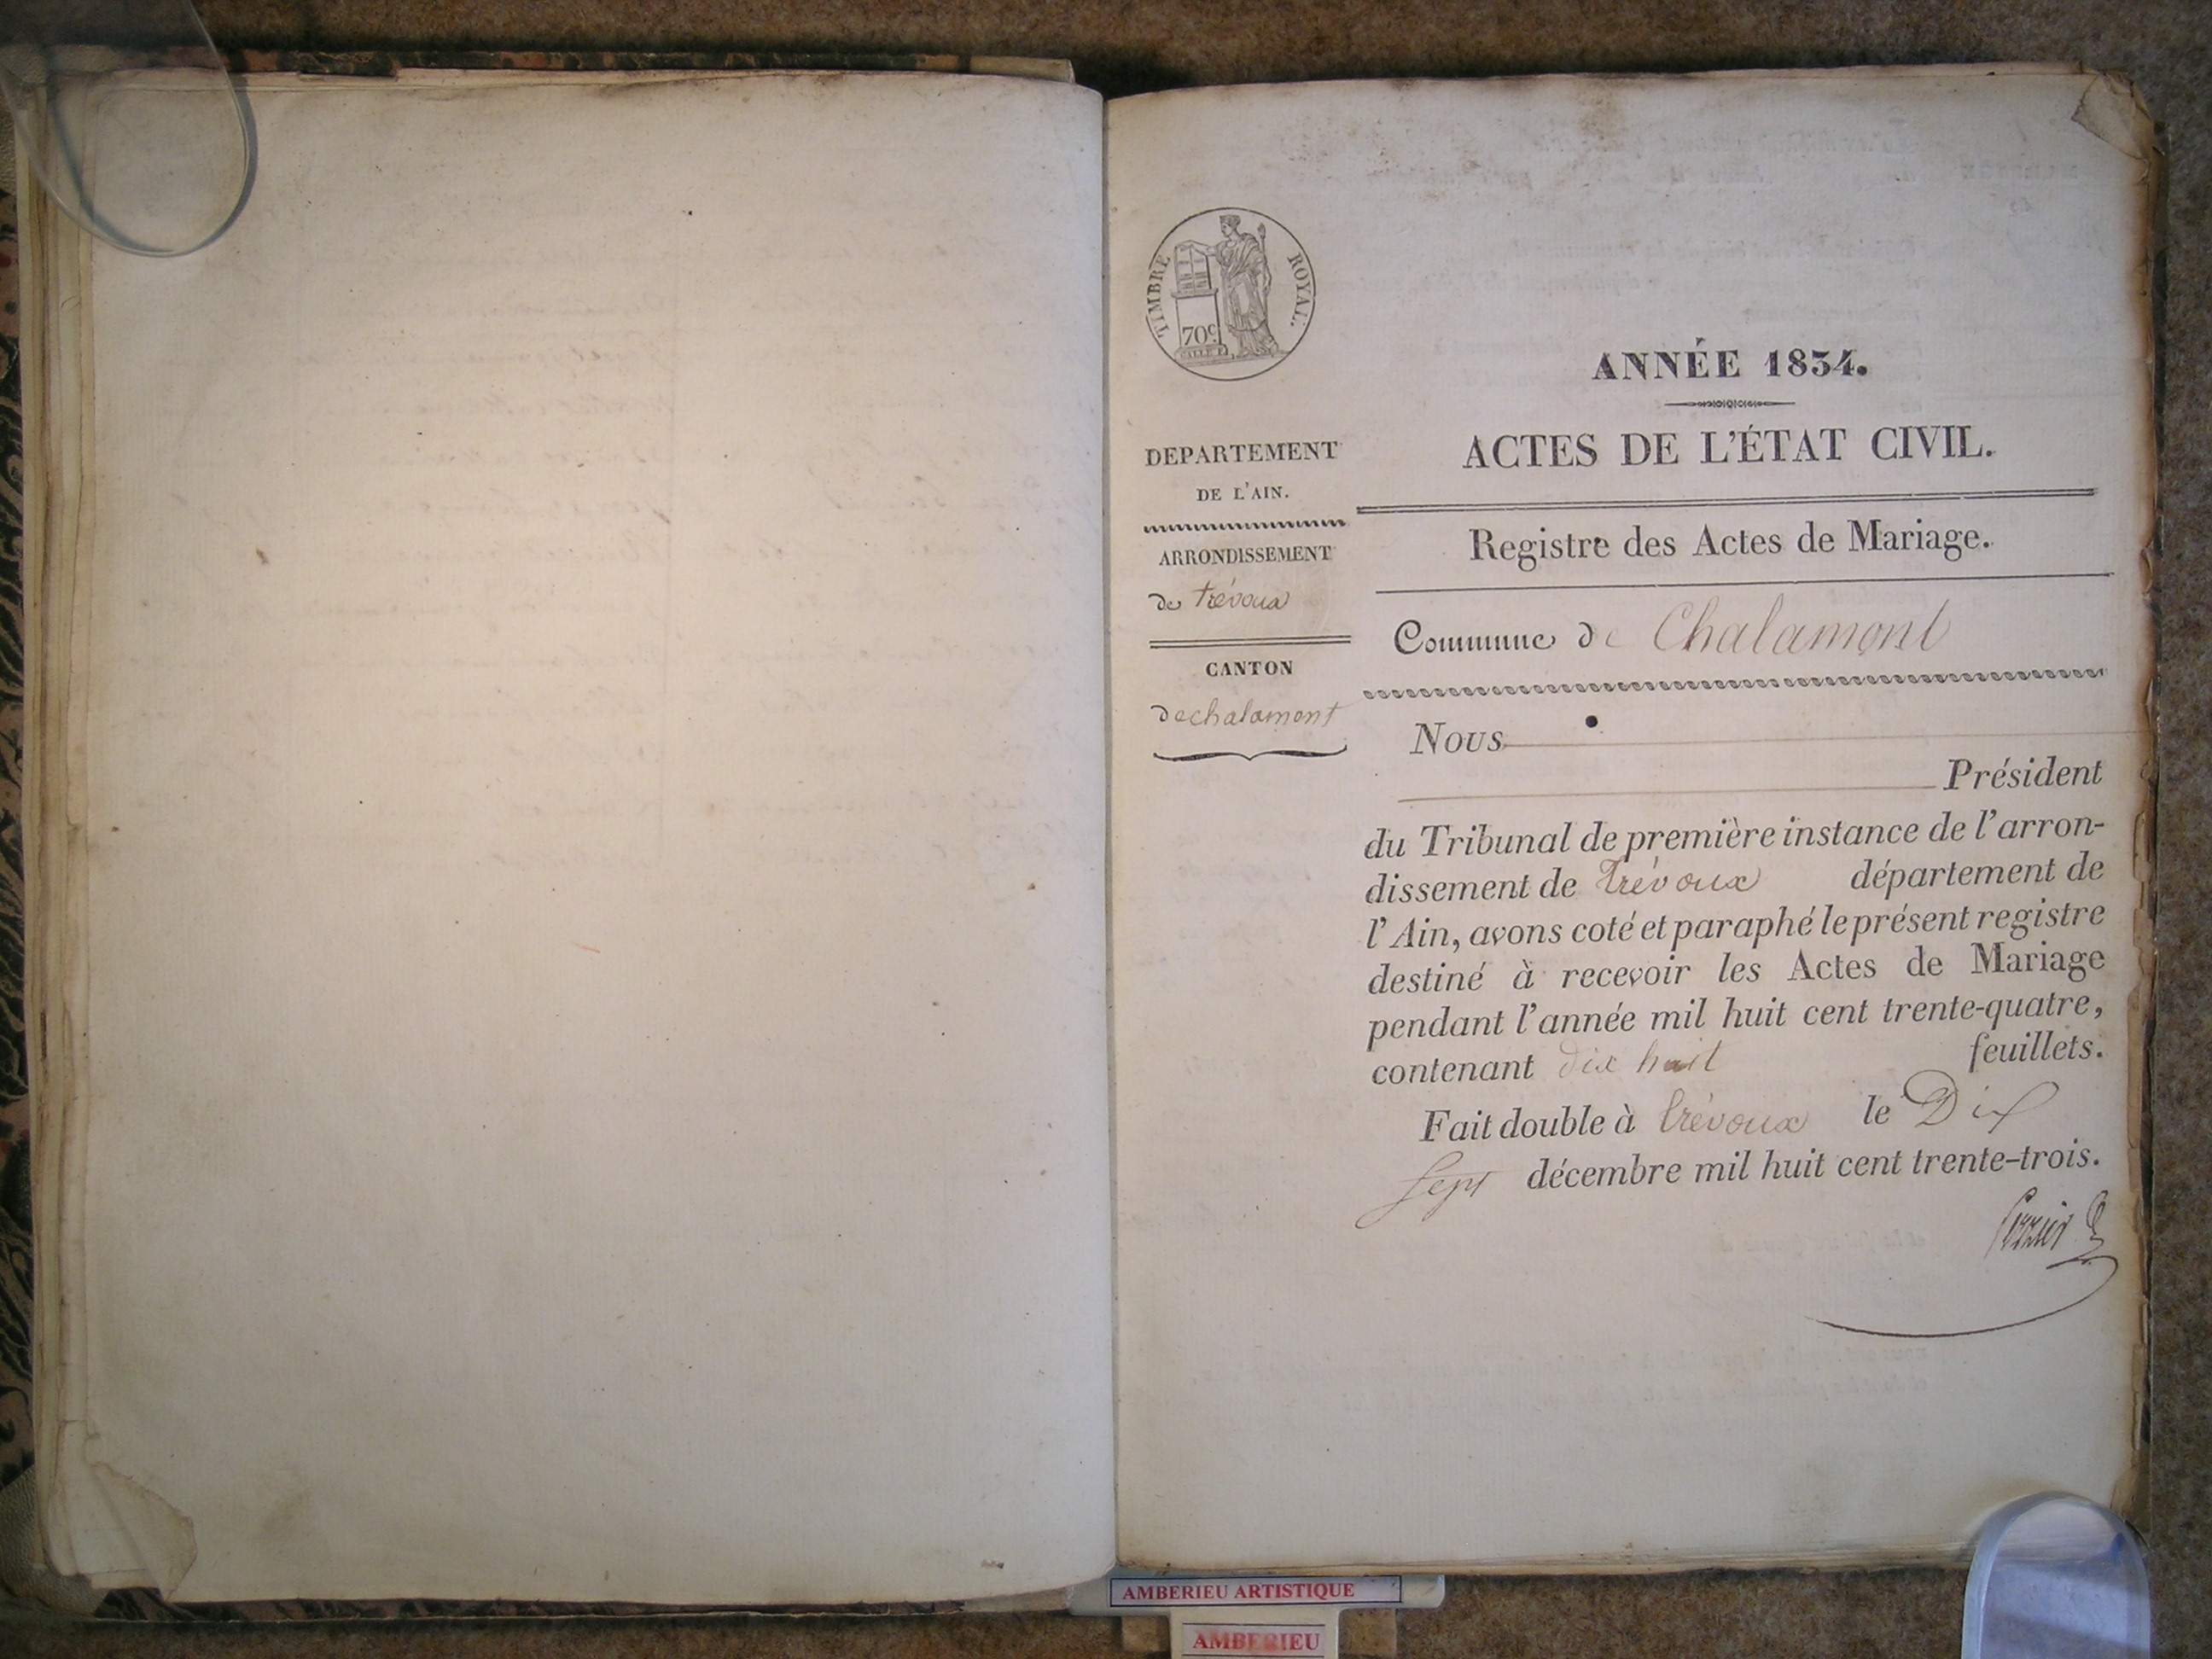 TIMBRE ROYAL.
70c.
ANNÉE 1834.
ACTES DE L'ÉTAT CIVIL.
Registre des Actes de Mariage.
Commune de Chalamont
DEPARTEMENT
DE L'AIN.
ARRONDISSEMENT
de trévoux
CANTON
de chalamont
Nous
Président
du Tribunal de première instance de l'arron-
dissement de trévoux département de
l'Ain, avons coté et paraphé le présent registre
destiné à recevoir les Actes de Mariage
pendant l'année mil huit cent trente-quatre,
contenant dix huit feuillets.
Fait double à trévoux le Dix
Sept décembre mil huit cent trente-trois.
AMBERIEU ARTISTIQUE
AMBERIEU